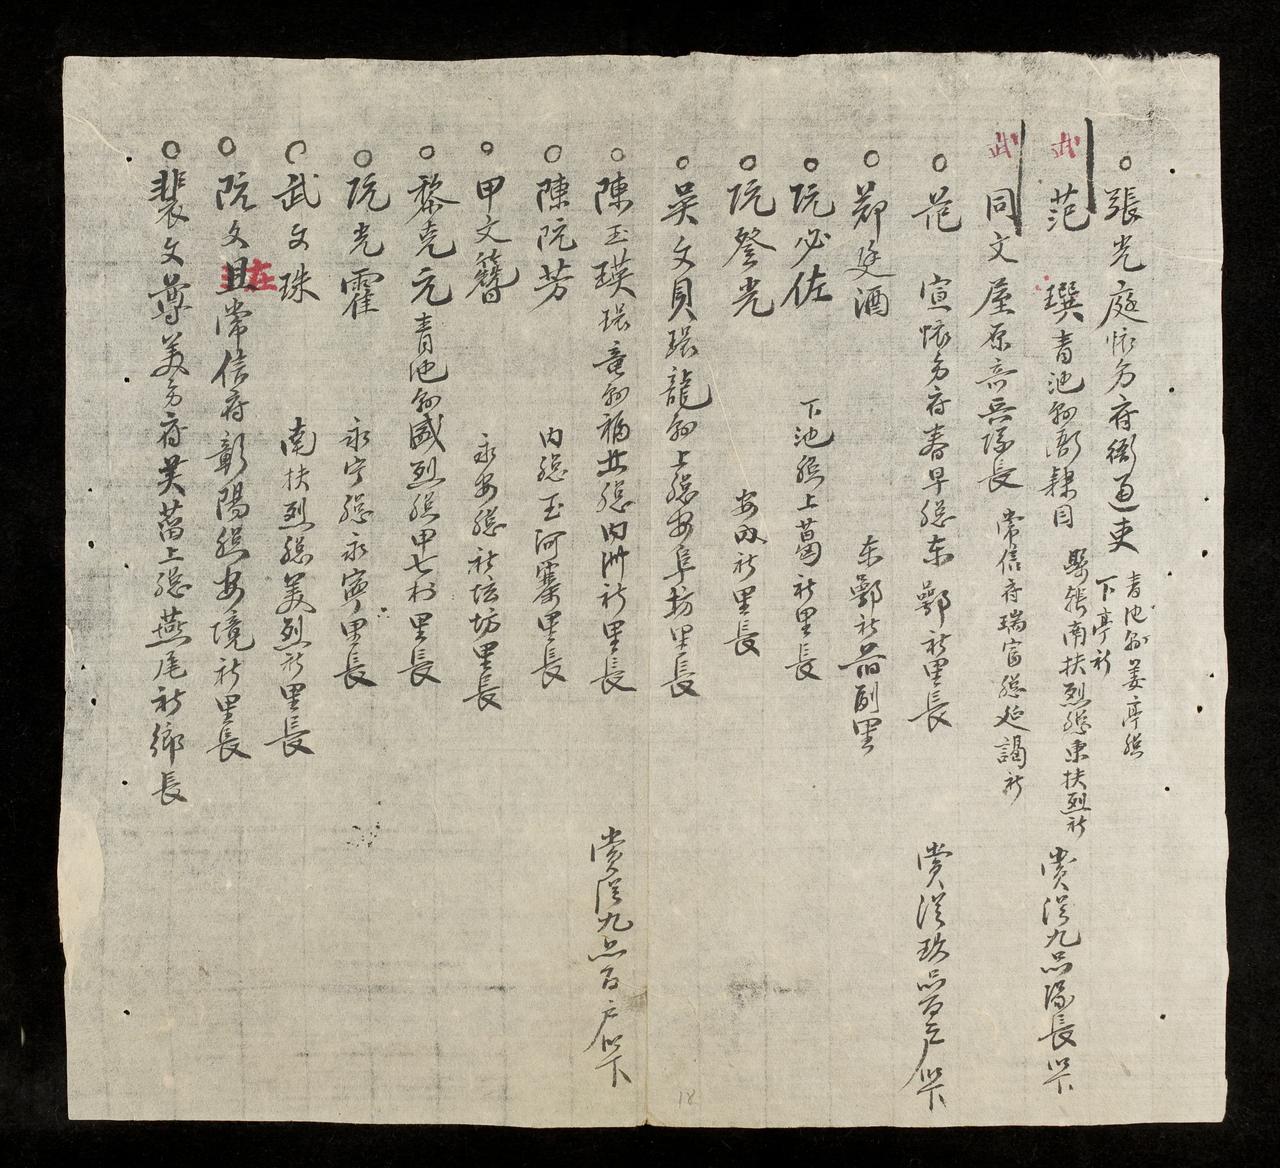 ○張光庭懷方府衙通吏 青池縣姜亭總
下亭社
武 范 璵青池縣衙隸目 縣張南扶烈總東扶烈社 賞從九品隊長以下
武 同文屋原奇兵隊長 常信府瑞富總延謁社
○范 宣懷方府春早總東鄂社里長 賞從玖品百戶以下
○鄭廷酒 東鄂社前副里
○阮必佐 下池總上葛社里長
○阮登光 安內社里長
○吳文貝環龍縣上總安阜坊里長
○陳玉瑛環竜縣福北總內洲社里長 賞從九品百戶以下
○陳阮芳 內總玉河寨里長
○甲文簪 永安總社坛坊里長
○黎克元青池縣盛烈總甲七村里長
○阮光霍 永宁總永寧里長
○武文珠 南扶烈總美烈社里長
在
○阮文且常信府彰陽總安境社里長
○裴文尊美方府芙蒥上總燕尾社鄉長
18